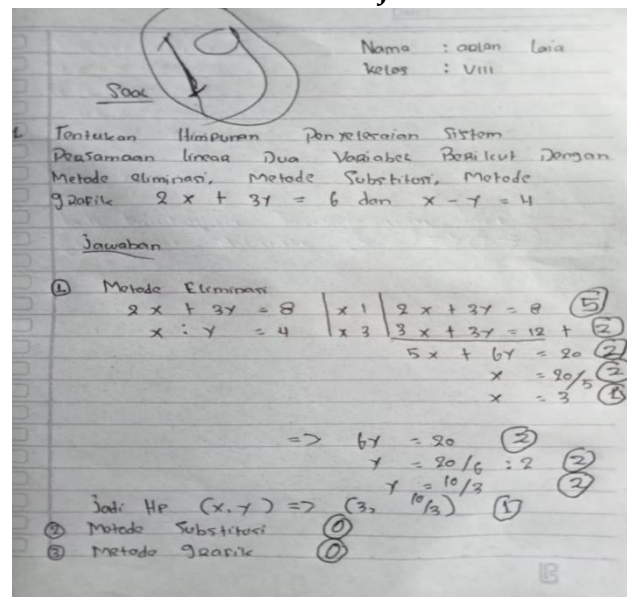 Nama : adlan Laia
Kelas : VIII
19
Soal
1. Tentukan Himpunan Penyelesaian Sistem
Persamaan linear Dua Variabel Berikut Dengan
Metode eliminasi, Metode Substitusi, Metode
grafik 2x + 3y = 6 dan x - y = 4
Jawaban
① Metode Eliminasi
2x + 3y = 8 | x 1 | 2x + 3y = 8 (5)
x : y = 4 | x 3 | 3x + 3y = 12 + (2)
5x + 6y = 20 (2)
x = 20/5 (2)
x = 3 (1)
=> 6y = 20 (2)
y = 20/6 : 2 (2)
y = 10/3 (2)
Jadi Hp (x, y) => (3, 10/3) (1)
② Metode Substitusi (0)
③ Metode grafik (0)